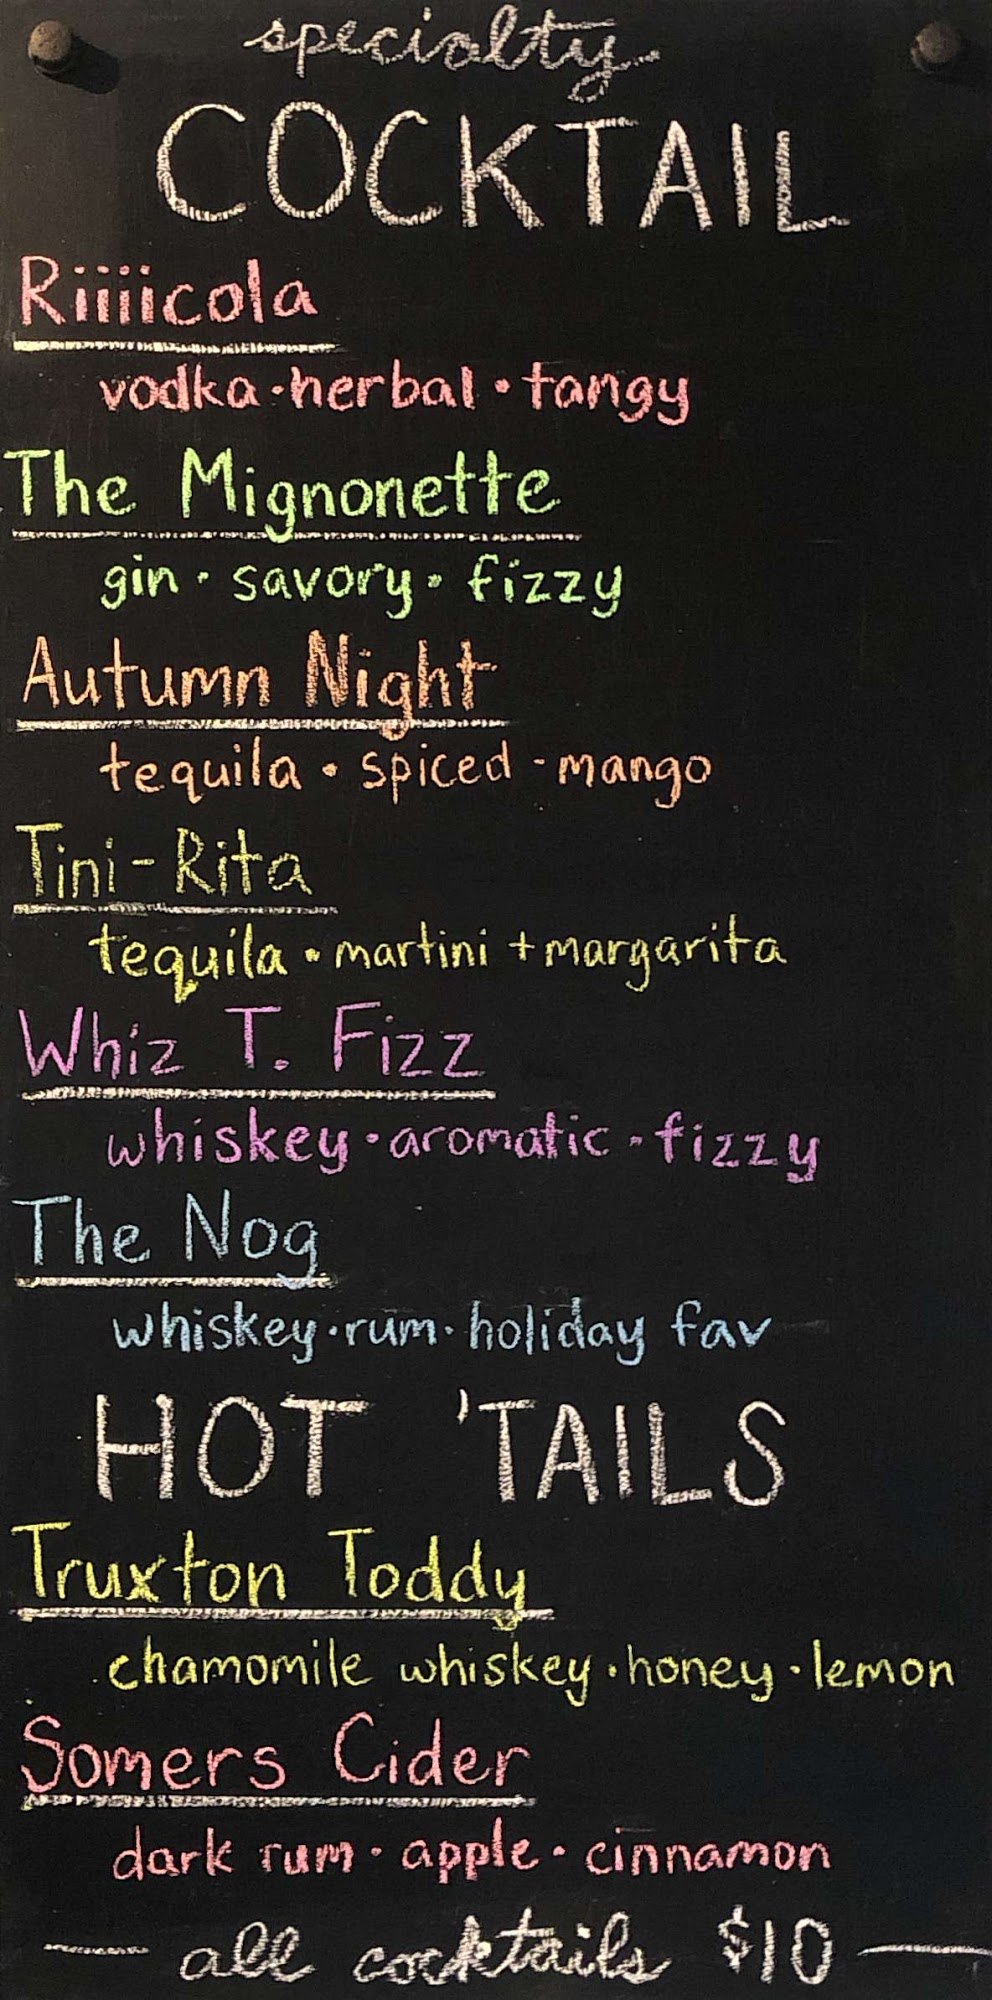 specialty
COCKTAIL
Riiiicola
vodka·herbal·tangy
The Mignonette
gin·savory·fizzy
Autumn Night
tequila·spiced·mango
Tini-Rita
tequila·martini + margarita
Whiz T. Fizz
whiskey·aromatic·fizzy
The Nog
whiskey·rum·holiday fav
HOT 'TAILS
Truxton Toddy
chamomile whiskey·honey·lemon
Somers Cider
dark rum·apple·cinnamon
— all cocktails $10 —